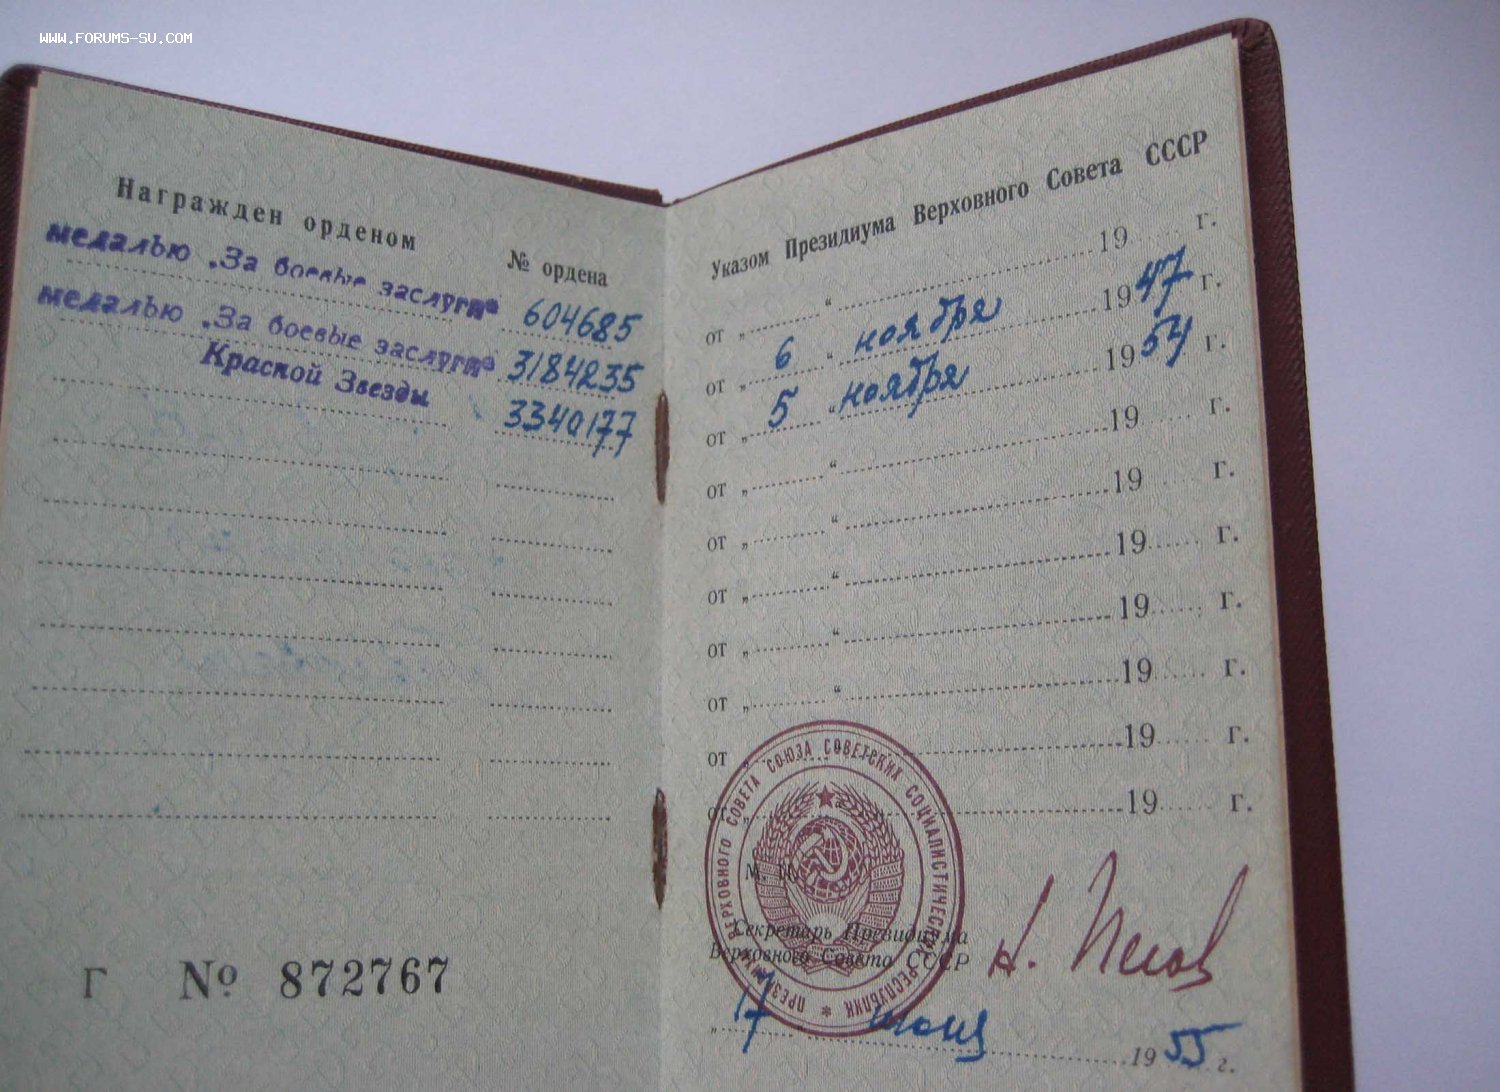 WWW.FORUMS-SU.COM
Награжден орденом
№ ордена
медалью „За боевые заслуги“ 604685
медалью „За боевые заслуги“ 3184235
Красной Звезды 3340177
Г № 872767
Указом Президиума Верховного Совета СССР
от „ “ 19 г.
от „ 6 “ ноября 1947 г.
от „ 5 “ ноября 1954 г.
от „ “ 19 г.
от „ “ 19 г.
от „ “ 19 г.
от „ “ 19 г.
от „ “ 19 г.
от „ 19 г.
от „ 19 г.
ПРЕЗИДИУМ ВЕРХОВНОГО СОВЕТА СОЮЗА СОВЕТСКИХ СОЦИАЛИСТИЧЕСКИХ РЕСПУБЛИК
М. П.
Секретарь Президиума
Верховного Совета СССР
Н. Пегов
„ 17 июня 1955 г.